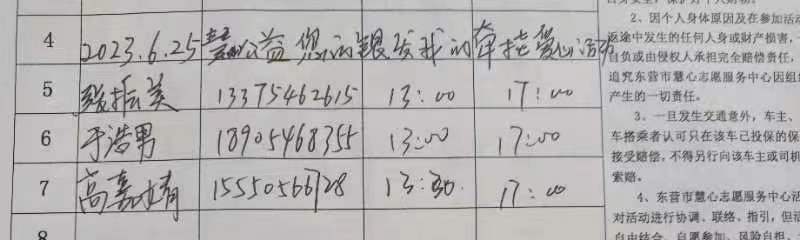 4 2023.6.25 慧心公益 您的银发我的牵挂爱心活动
5 张振美 13375462615 13:00 17:00
6 于浩男 18905468355 13:00 17:00
7 高嘉婧 15550566728 13:30 17:00
8
2、因个人身体原因及在参加活动
返途中发生的任何人身或财产损害,
自负或由侵权人承担完全赔偿责任,
追究东营市慧心志愿服务中心因组织
产生的一切责任。
3、一旦发生交通意外,车主、
车搭乘者认可只在该车已投保的保
接受赔偿,不得另行向该车主或司机
索赔。
4、东营市慧心志愿服务中心活
对活动进行协调、联络、指引,但活
自由结合、自愿参加、风险自担、